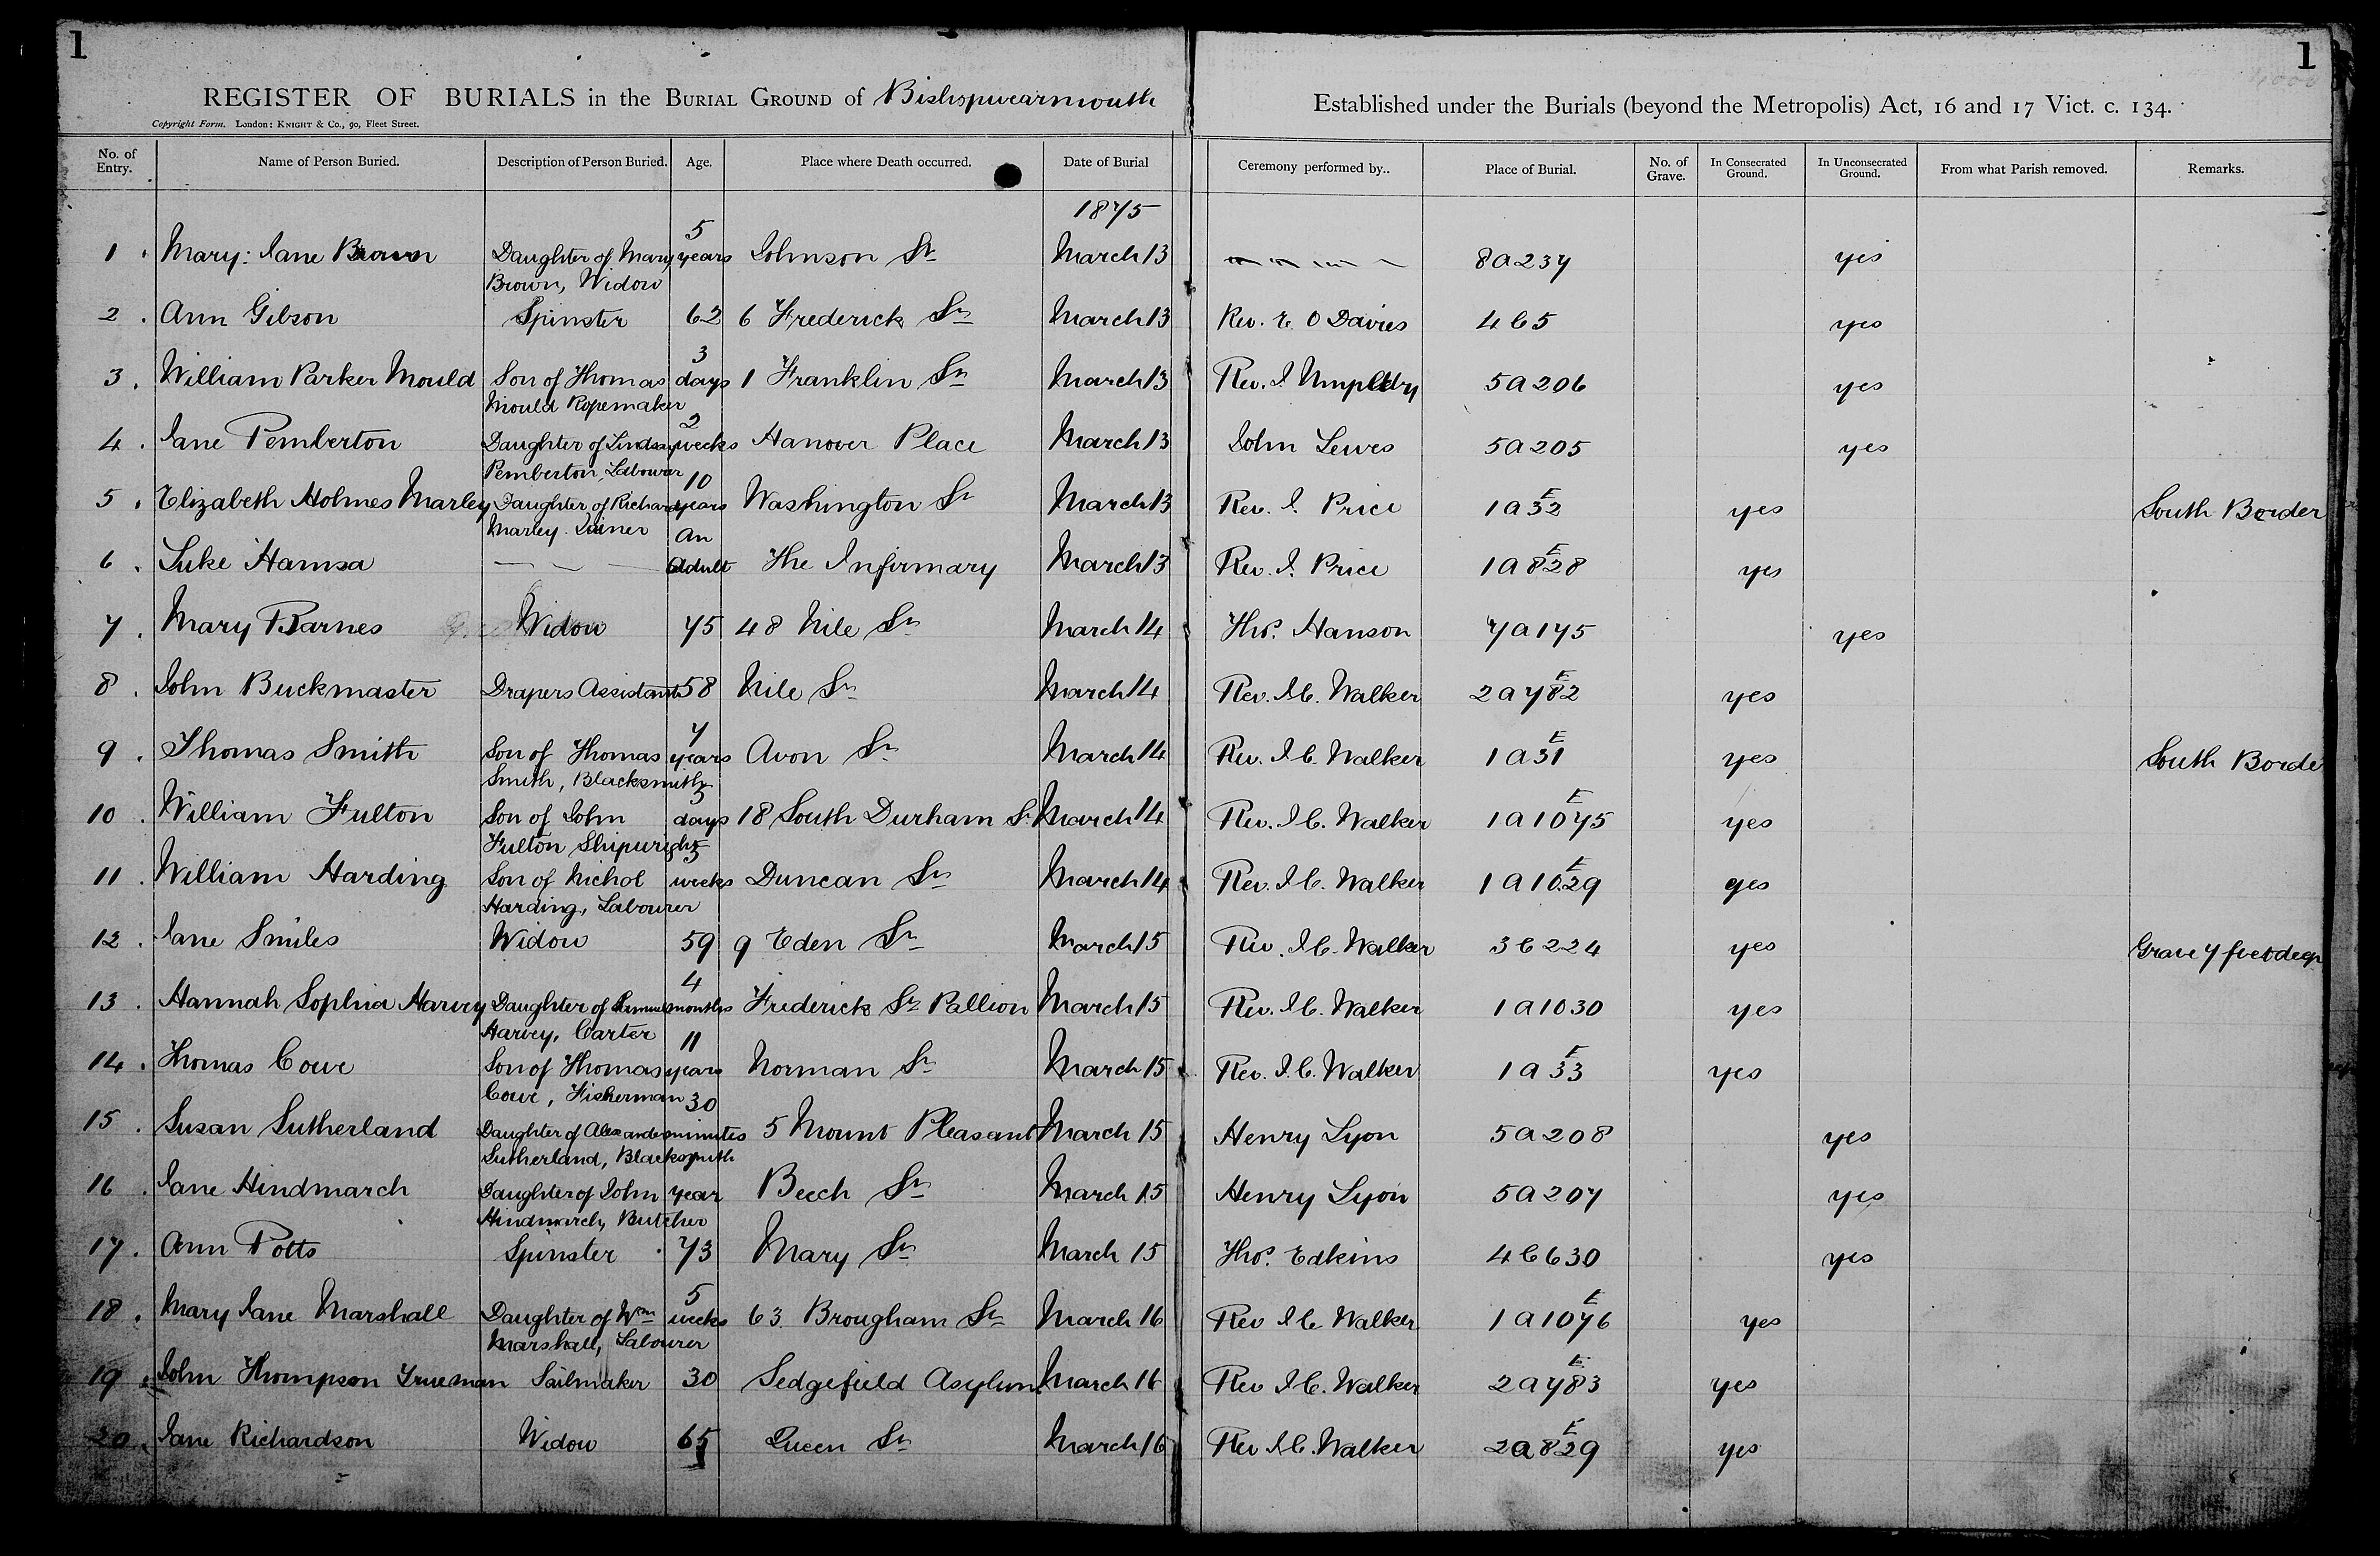 1
1
REGISTER OF BURIALS in the BURIAL GROUND of Bishopwearmouth
Established under the Burials (beyond the Metropolis) Act, 16 and 17 Vict. c. 134.
Copyright Form. London: KNIGHT & Co., 90, Fleet Street.
No. of Entry. Name of Person Buried. Description of Person Buried. Age. Place where Death occurred. Date of Burial Ceremony performed by.. Place of Burial. No. of Grave. In Consecrated Ground. In Unconsecrated Ground. From what Parish removed. Remarks.
1875
1 . Mary: Jane Brown Daughter of Mary Brown, Widow 5 years Johnson St March 13 8a237 yes
2 . Ann Gibson Spinster 62 6 Frederick St March 13 Rev. E. O Davies 4C5 yes
3 . William Parker Mould Son of Thomas Mould Ropemaker 3 days 1 Franklin St March 13 Rev. J. 5a206 yes
4 . Jane Pemberton Daughter of Lindsay Pemberton, Labourer 2 weeks Hanover Place March 13 John Lewes 5a205 yes
5 . Elizabeth Holmes Marley Daughter of Richard Marley. Joiner 10 years Washington St March 13 Rev. J. Price 1a32 E yes South Border
6 . Luke Hamsa An adult The Infirmary March 13 Rev. J. Price 1a828 E yes
7 . Mary Barnes Widow 75 48 Nile St March 14 Thos. Hanson 7a175 yes
8 . John Buckmaster Drapers Assistant 58 Nile St March 14 Rev. J C. Walker 2a782 E yes
9 . Thomas Smith Son of Thomas Smith, Blacksmith 7 years Avon St March 14 Rev. J C. Walker 1a31 E yes South Borde
10 . William Fulton Son of John Fulton Shipwright 3 days 18 South Durham St March 14 Rev. J C. Walker 1a1075 E yes
11 . William Harding Son of Nichol Harding, Labourer 5 weeks Duncan St March 14 Rev. J C. Walker 1a1029 E yes
12 . Jane Smiles Widow 59 9 Eden St March 15 Rev. J C. Walker 3C224 yes Grave 7 feet deep
13 . Hannah Sophia Harvey Daughter of Samuel Harvey, Carter 4 months Frederick St Pallion March 15 Rev. J C. Walker 1a1030 yes
14 . Thomas Cowe Son of Thomas Cowe, Fisherman 11 years Norman St March 15 Rev. J. C. Walker 1a33 E yes
15 . Susan Sutherland Daughter of Alexander Sutherland, Blacksmith 30 minutes 5 Mount Pleasant March 15 Henry Lyon 5a208 yes
16 . Jane Hindmarch Daughter of John Hindmarch, Butcher year Beech St March 15 Henry Lyon 5a207 yes
17 . Ann Potts Spinster 73 Mary St March 15 Thos. Edkins 4C630 yes
18 . Mary Jane Marshall Daughter of Wm Marshall, Labourer 5 weeks 63. Brougham St March 16 Rev J C Walker 1a1076 E yes
19 . John Thompson Trueman Sailmaker 30 Sedgefield Asylum March 16 Rev J C. Walker 2a783 E yes
20 . Jane Richardson Widow 65 Queen St March 16 Rev J C. Walker 2a829 E yes